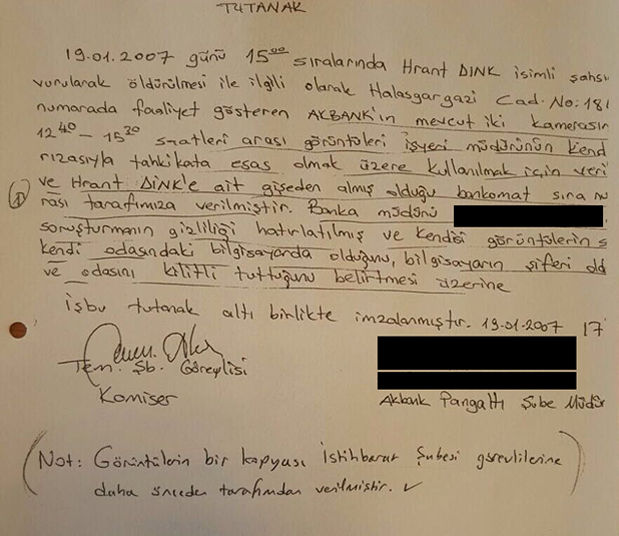 TUTANAK
19.01.2007 günü 15⁰⁰ sıralarında Hrant DİNK isimli şahsı
vurularak öldürülmesi ile ilgili olarak Halasgargazi Cad. No: 181
numarada faaliyet gösteren AKBANK'ın mevcut iki kamerasın
12⁴⁰ – 15²⁰ saatleri arası görüntüleri işyeri müdürünün kend
rızasıyla tahkikata esas olmak üzere kullanılmak için veri
ve Hrant DİNK'e ait gişeden almış olduğu bankomat sıra nu
rası tarafımıza verilmiştir. Banka müdürü
soruşturmanın gizliliği hatırlatılmış ve kendisi görüntülerin s
kendi odasındaki bilgisayarda olduğunu, bilgisayarın şifreli old
ve odasını kilitli tuttuğunu belirtmesi üzerine
işbu tutanak altı birlikte imzalanmıştır. 19.01.2007 17
Tem. Şb. Görevlisi
Komiser
Akbank Pangaltı Şube Müdür
(Not: Görüntülerin bir kopyası İstihbarat Şubesi görevlilerine
daha önceden tarafımdan verilmiştir. ✓)